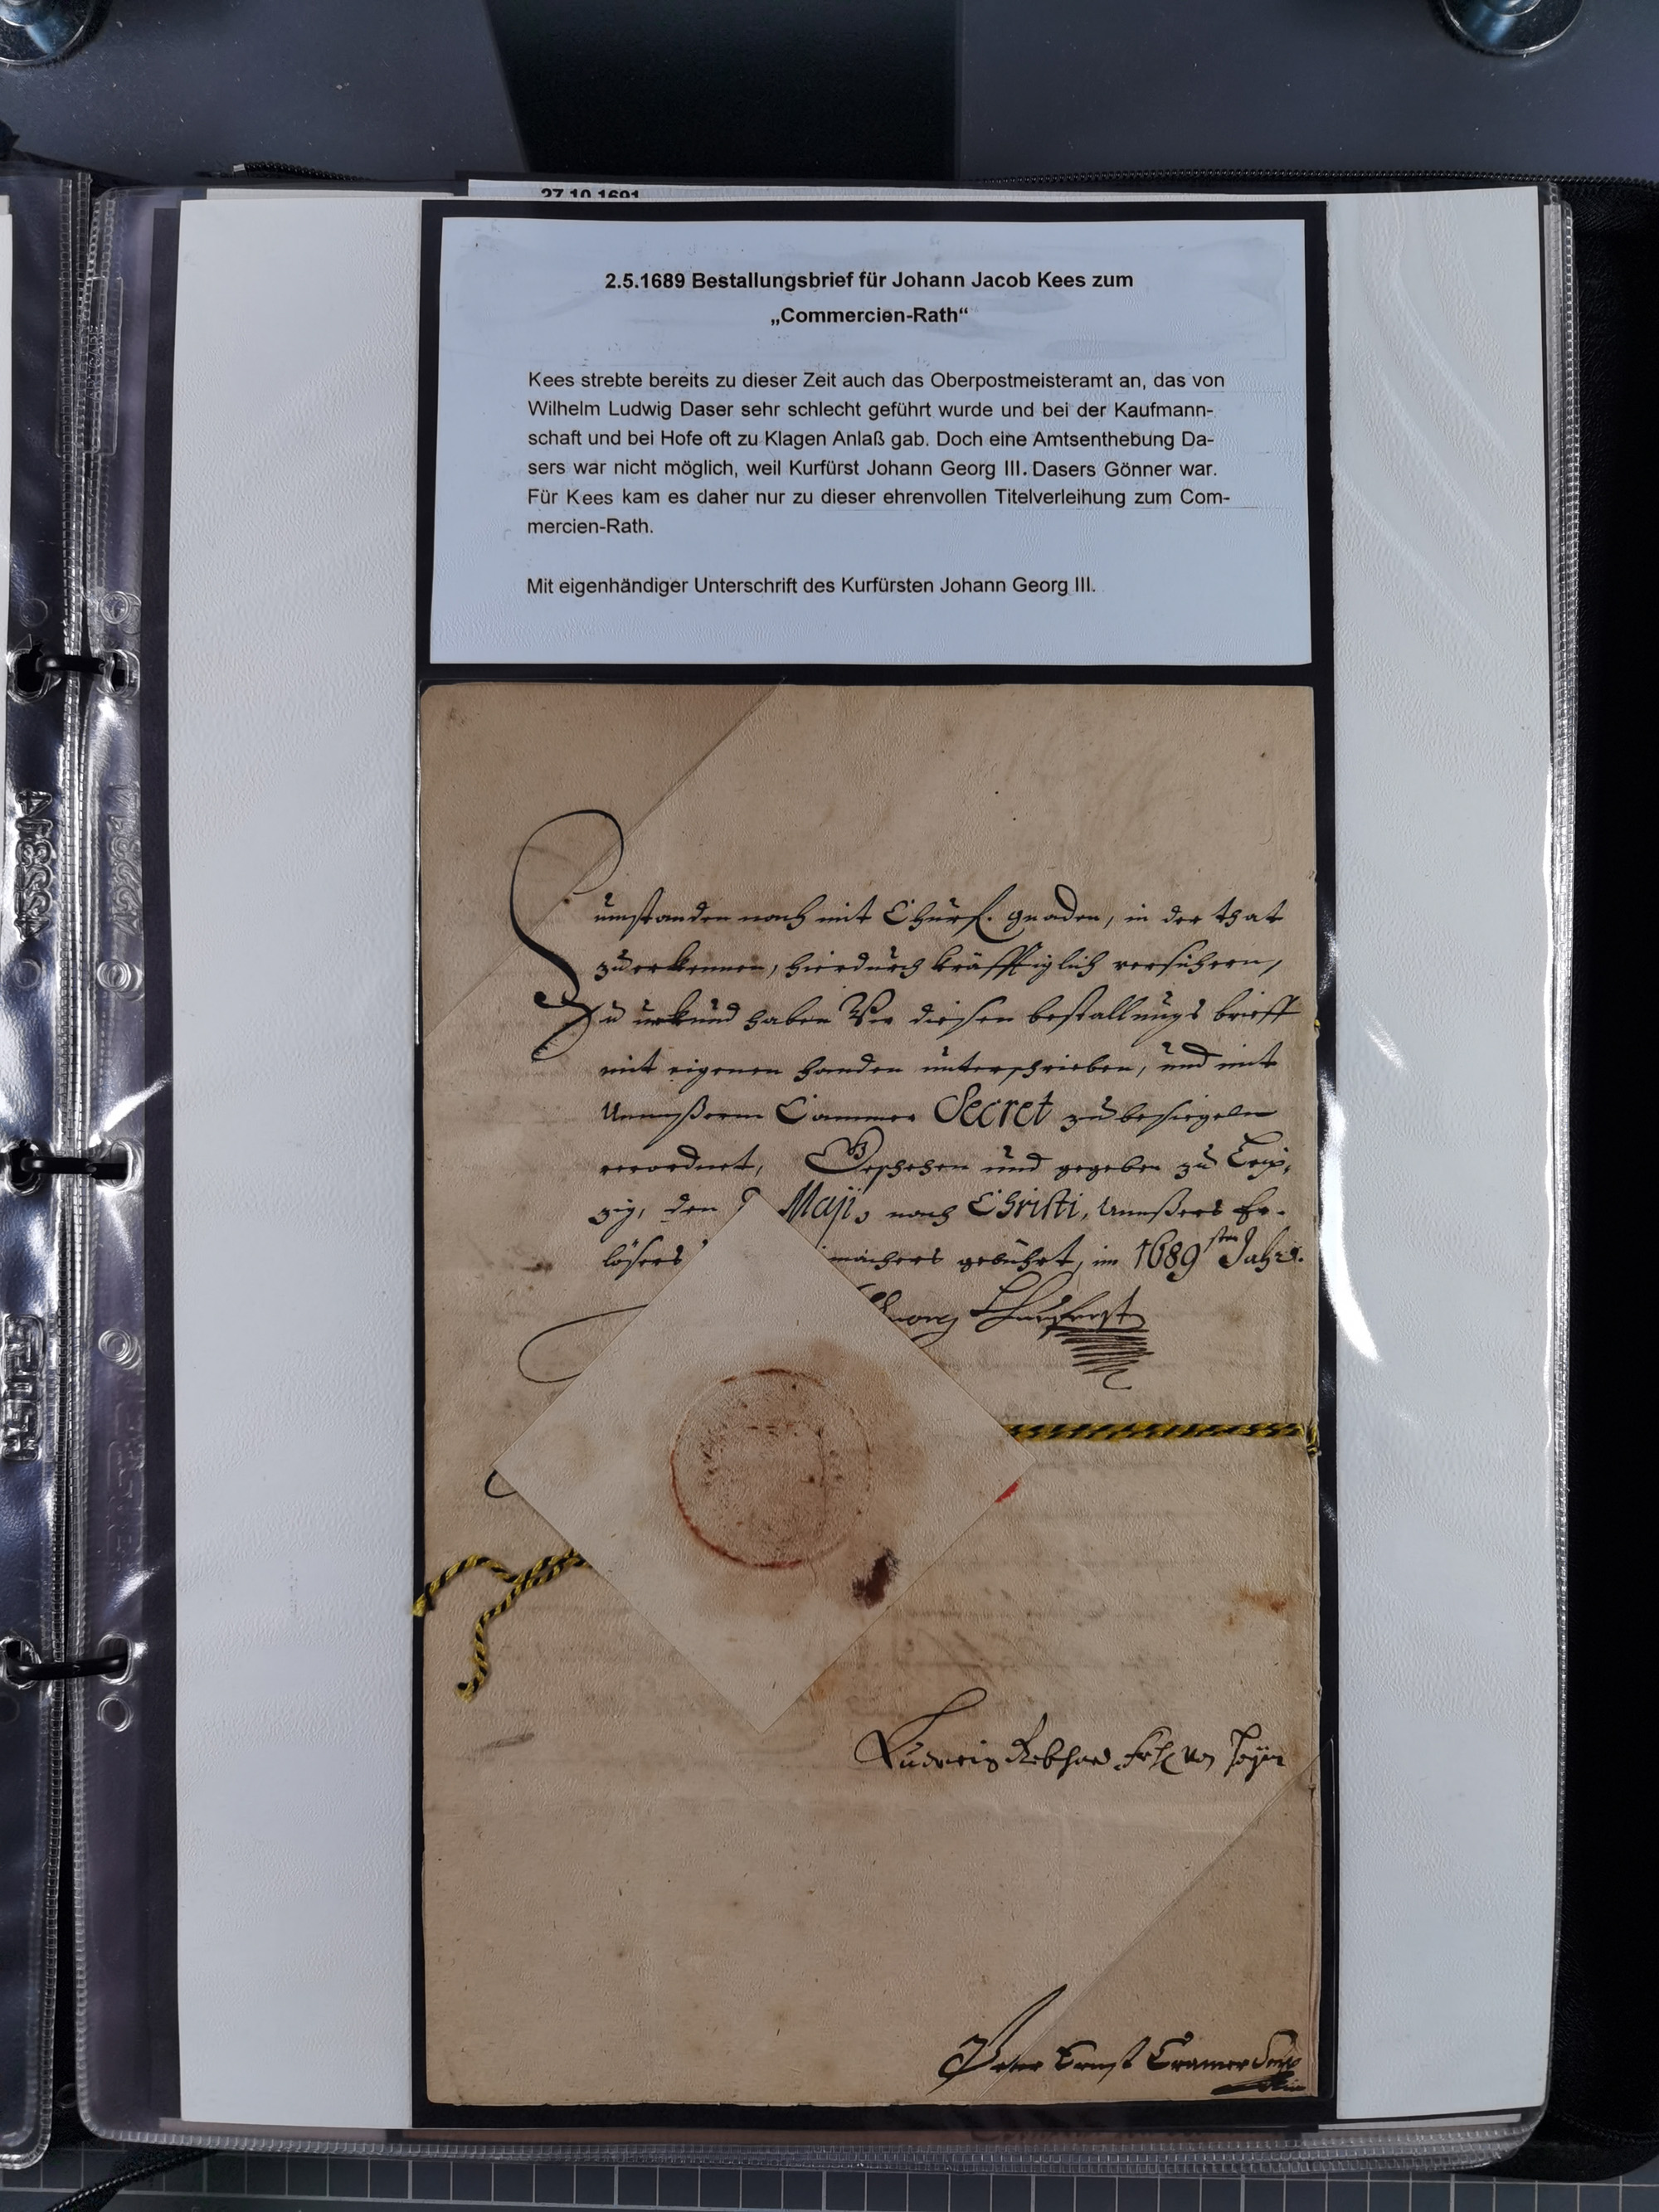 27.10.1691
2.5.1689 Bestallungsbrief für Johann Jacob Kees zum
„Commercien-Rath“
Kees strebte bereits zu dieser Zeit auch das Oberpostmeisteramt an, das von
Wilhelm Ludwig Daser sehr schlecht geführt wurde und bei der Kaufmann-
schaft und bei Hofe oft zu Klagen Anlaß gab. Doch eine Amtsenthebung Da-
sers war nicht möglich, weil Kurfürst Johann Georg III. Dasers Gönner war.
Für Kees kam es daher nur zu dieser ehrenvollen Titelverleihung zum Com-
mercien-Rath.
Mit eigenhändiger Unterschrift des Kurfürsten Johann Georg III.
umstanden nach mit Churf. gnaden, in der that
zu erkennen, hierdurch kräfftiglich versichern,
Zu urkund haben Wir diesen bestallungs brieff
mit eigenen handen unterschrieben, und mit
Unnßerm Cammer Secret zu besiegeln
verordnet, Geschehen und gegeben zu Leip,
zig, den Maji, nach Christi, Unnßers Er-
lösers machers gebuhrt, im 1689sten Jahre.
Churfürst
Ludwig Gebhard Frh. von Hoym
Ernst Cramer